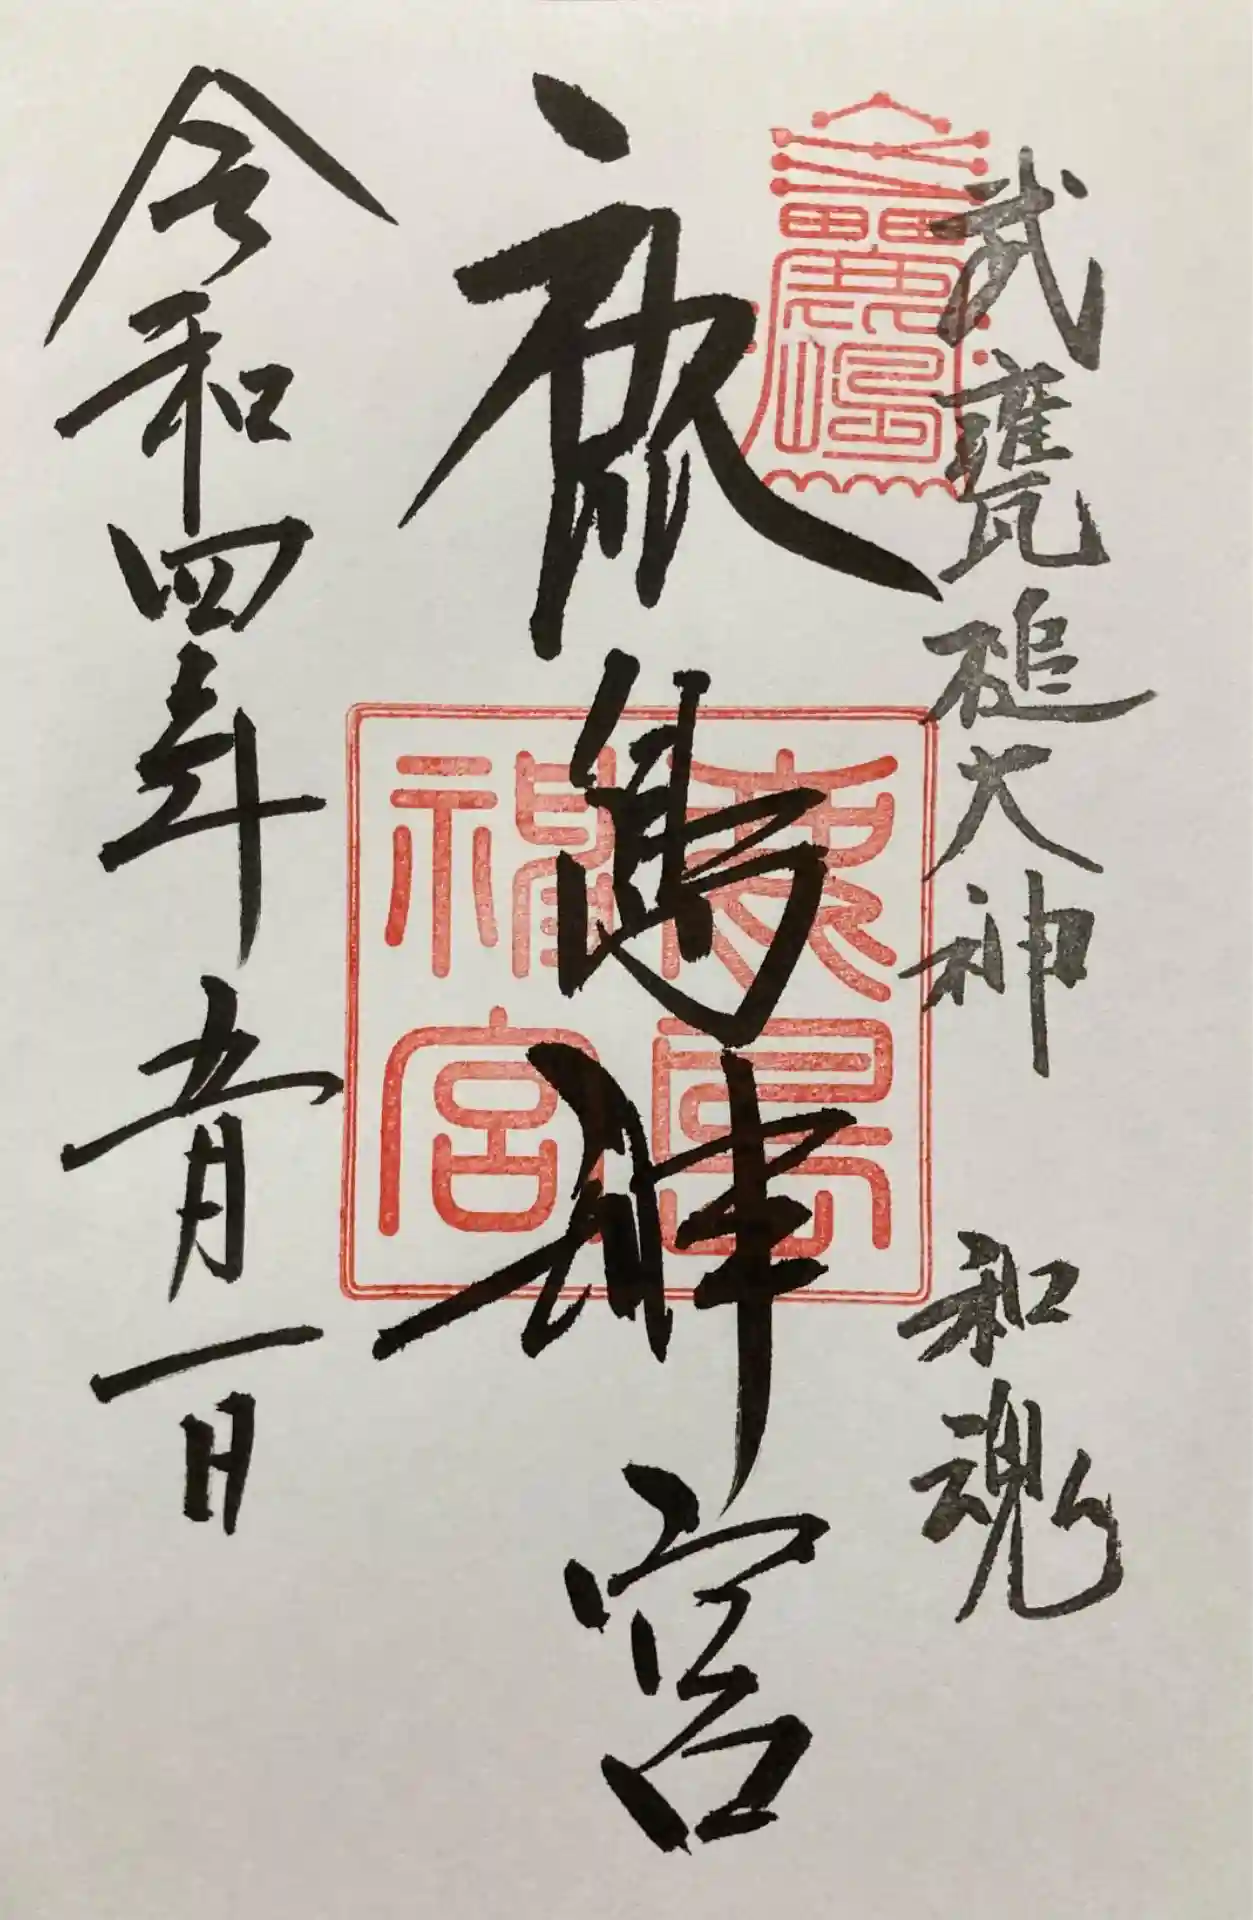 武甕槌大神 和魂
鹿嶋神宮
鹿島神宮
令和四年五月一日